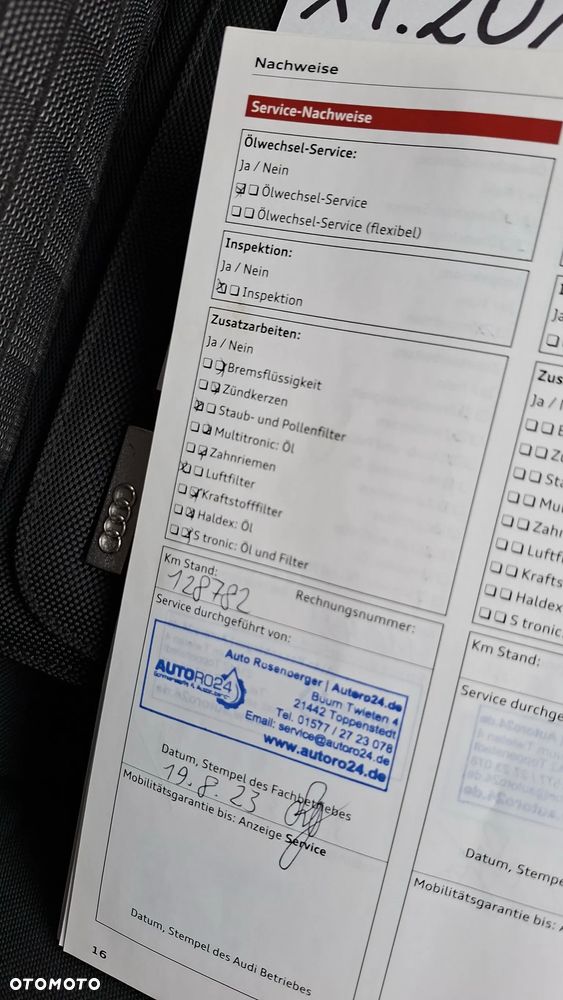 XI.20
Nachweise
Service-Nachweise
Ölwechsel-Service:
Ja / Nein
Ölwechsel-Service
Ölwechsel-Service (flexibel)
Inspektion:
Ja / Nein
Inspektion
Zusatzarbeiten:
Ja / Nein
Bremsflüssigkeit
Zündkerzen
Staub- und Pollenfilter
Multitronic: Öl
Zahnriemen
Luftfilter
Kraftstofffilter
Haldex: Öl
S tronic: Öl und Filter
Km Stand:
128782
Rechnungsnummer:
Service durchgeführt von:
AUTORO24
Auto Rosenberger | Autoro24.de
Buum Twieten 4
21442 Toppenstedt
Tel. 01577 / 27 23 078
Email: service@autoro24.de
www.autoro24.de
19.8.23
Datum, Stempel des Fachbetriebes
Mobilitätsgarantie bis: Anzeige Service
Datum, Stempel des Audi Betriebes
16
Ja
Zus
Ja /
B
Zü
Sta
Mul
Zahn
Luftf
Krafts
Haldex
S tronic:
Km Stand:
Service durchge
Datum, Stempe
Mobilitätsgarantie bis:
OTOMOTO